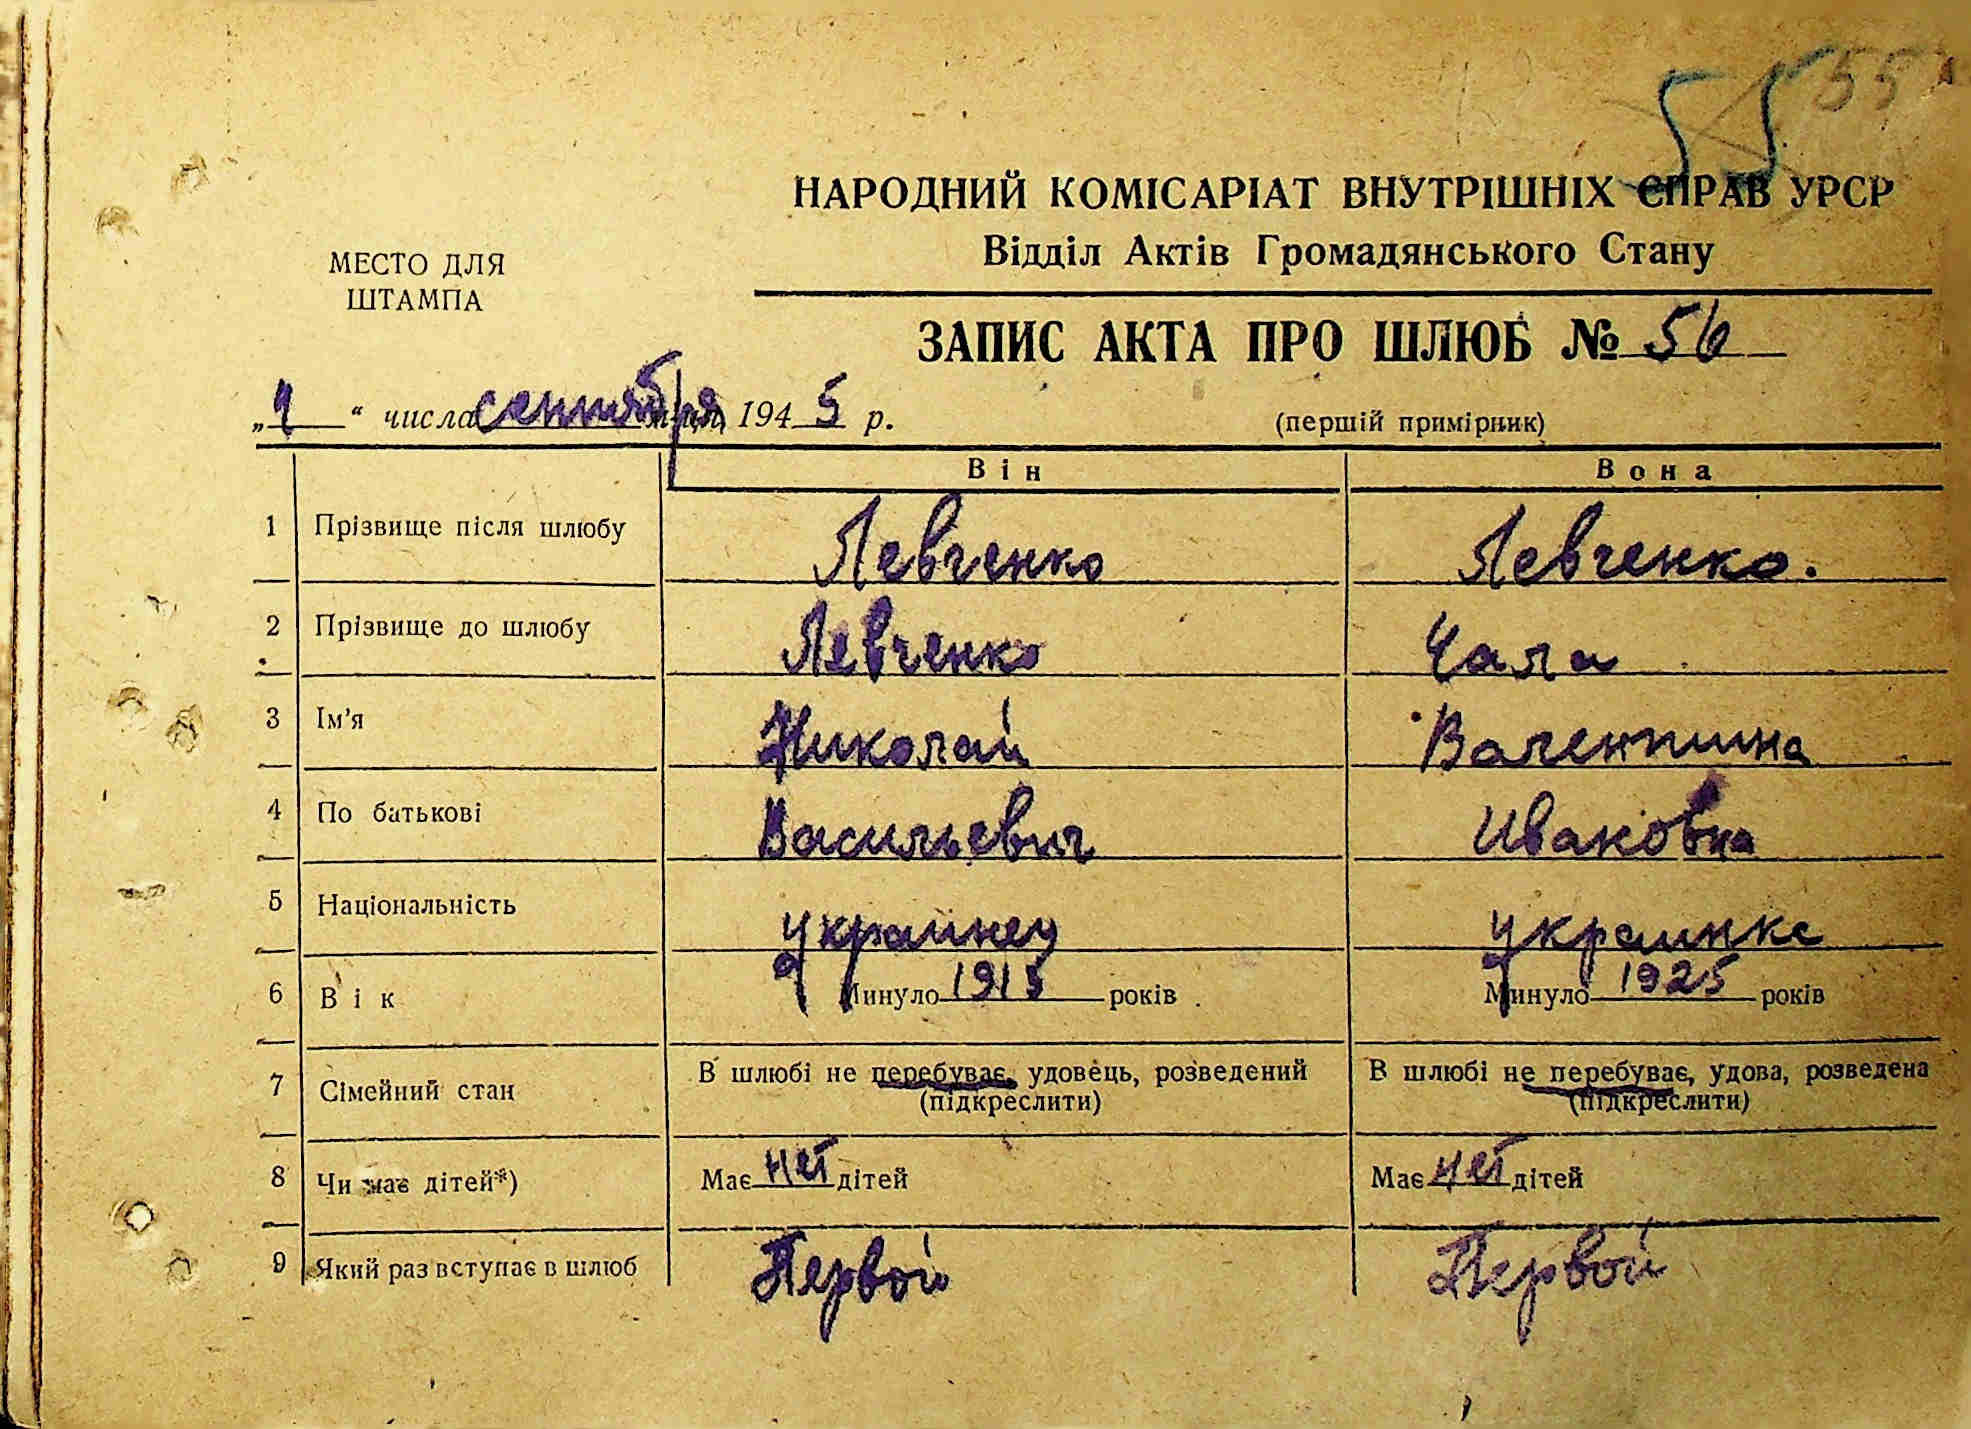 55 55
НАРОДНИЙ КОМІСАРІАТ ВНУТРІШНІХ СПРАВ УРСР
Відділ Актів Громадянського Стану
МЕСТО ДЛЯ
ШТАМПА
ЗАПИС АКТА ПРО ШЛЮБ № 56
„4“ числа сентября м-ця, 1945 р.
(першій примірник)
Він Вона
1 Прізвище після шлюбу Левченко Левченко.
2 Прізвище до шлюбу Левченко Чала
3 Ім'я Николай Валентина
4 По батькові Васильевич Ивановна
5 Національність Украинец Украинка
6 Вік Минуло 1913 років Минуло 1925 років
7 Сімейний стан В шлюбі не перебуває, удовець, розведений В шлюбі не перебуває, удова, розведена
(підкреслити) (підкреслити)
8 Чи має дітей*) Має нет дітей Має нет дітей
9 Який раз вступає в шлюб Первой Первой